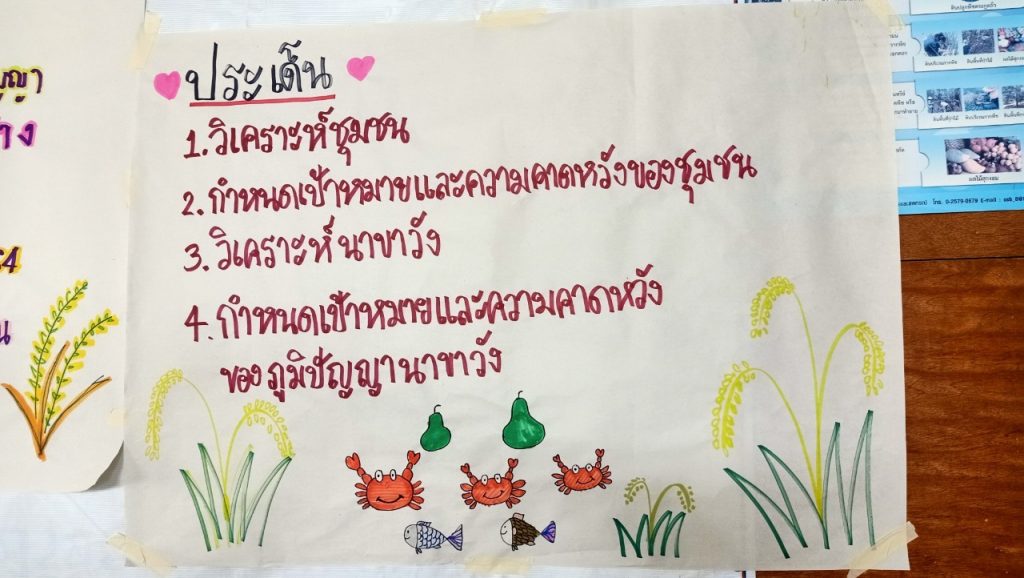 ประเด็น
1. วิเคราะห์ชุมชน
2. กำหนดเป้าหมายและความคาดหวังของชุมชน
3. วิเคราะห์นาขาวัง
4. กำหนดเป้าหมายและความคาดหวัง
ของภูมิปัญญานาขาวัง
ผลไม้สุกงอม
โทร. 0-2579-0679 E-mail :